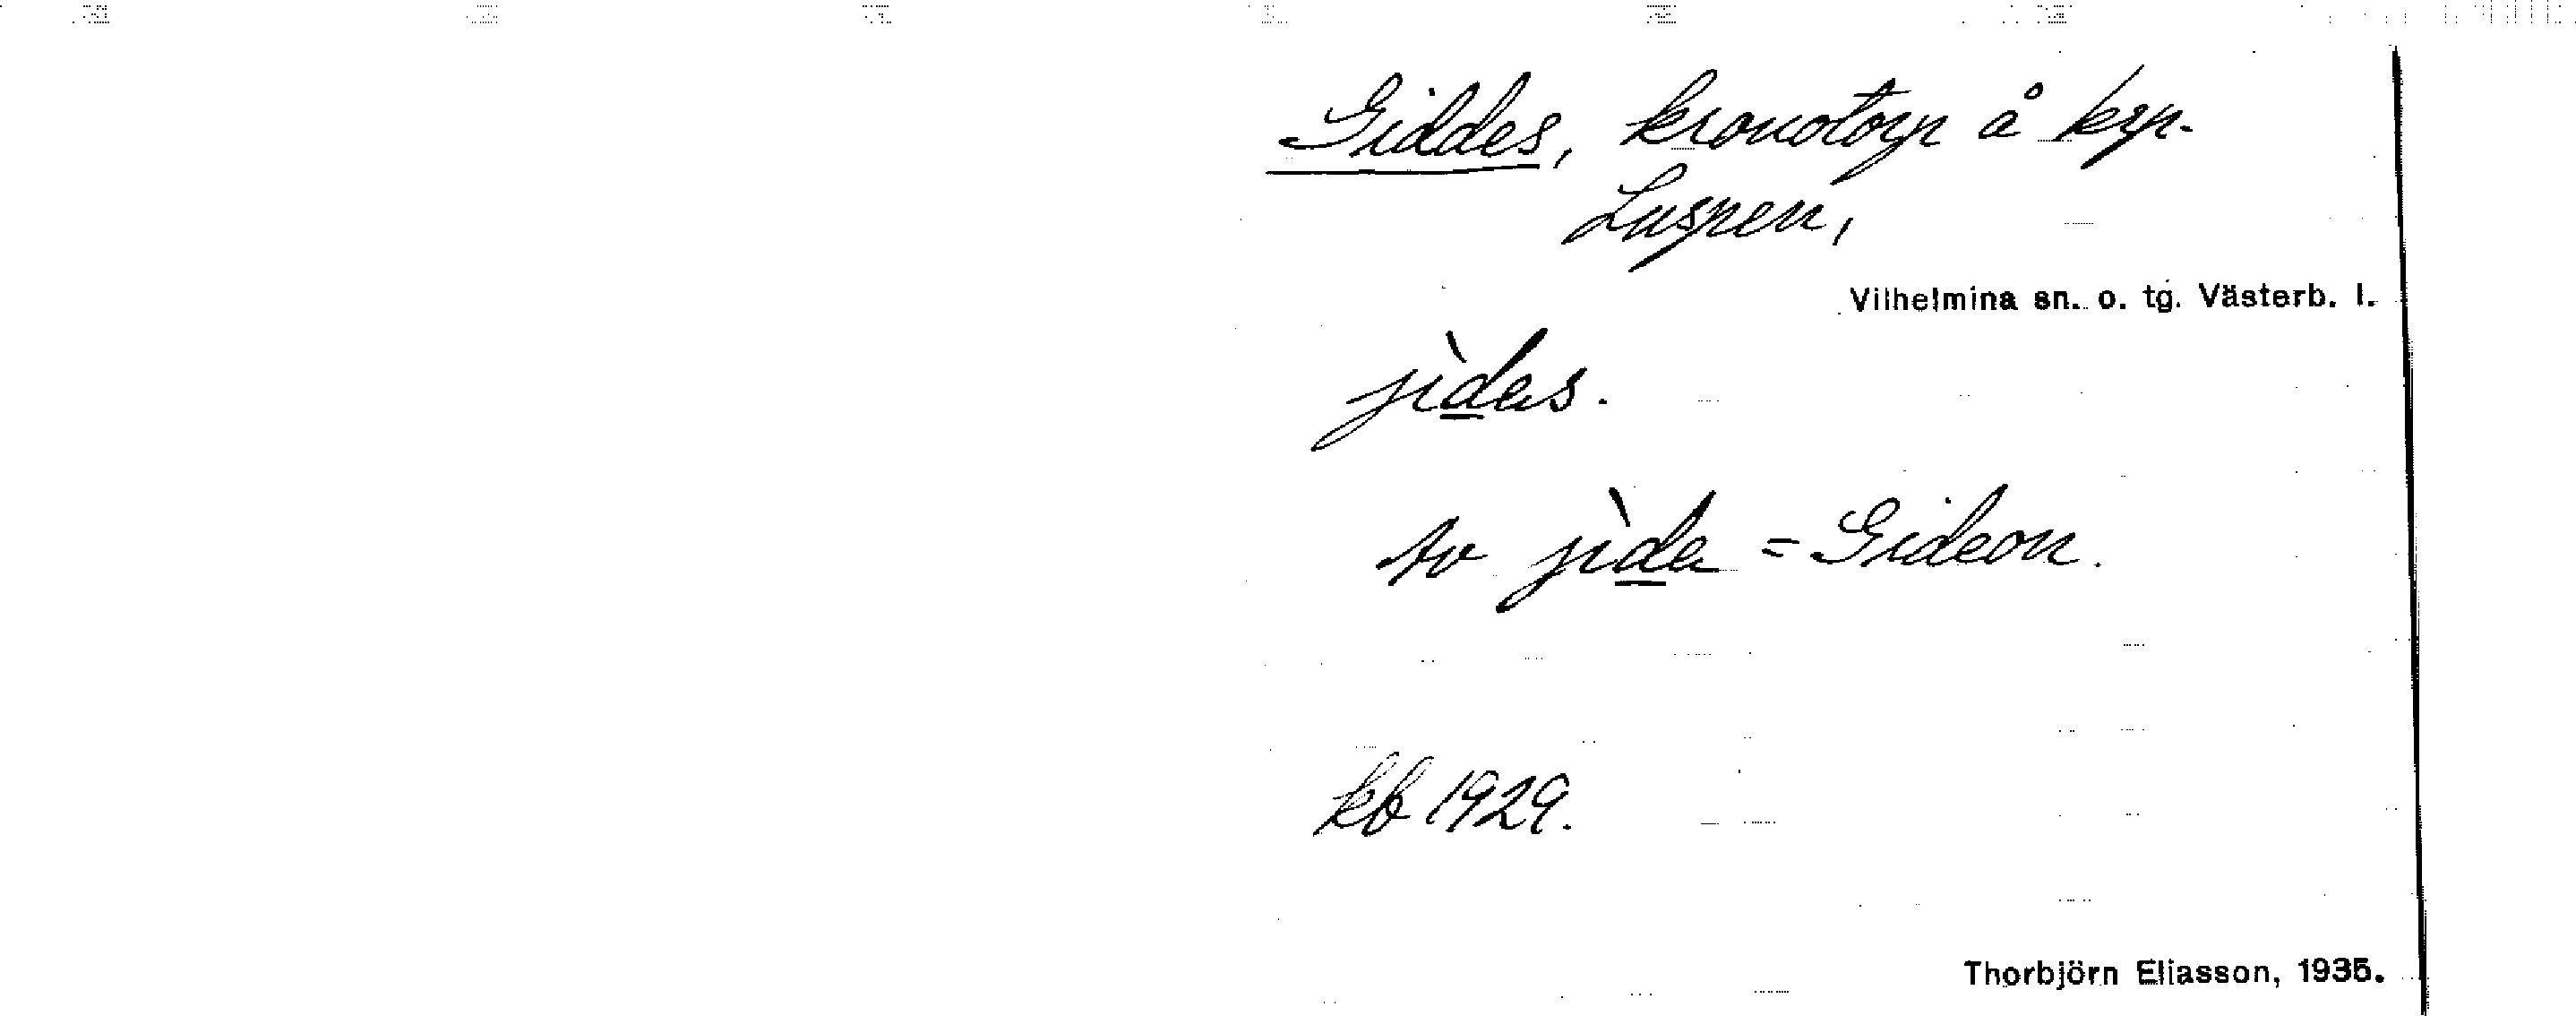 Giddes, kronotorp å krp.
Luspen,
Vilhelmina sn. o. tg. Västerb. l.
jìdas.
Av jìda = Gideon.
kb 1929.
Thorbjörn Eliasson, 1935.